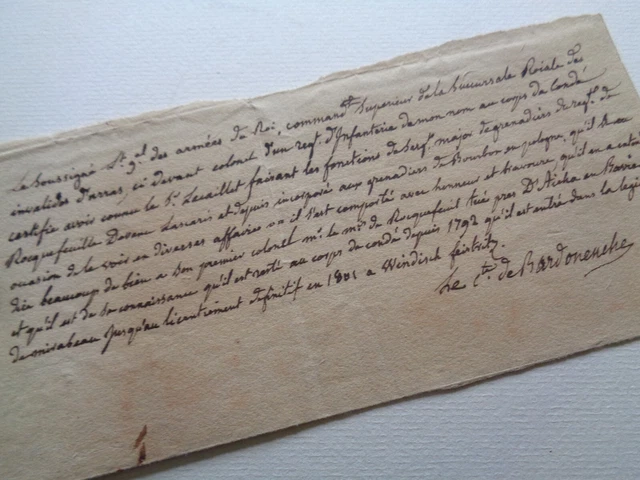 Le Soussigné Lt. gal. des armées du Roi, commandt. Superieur de la Succursale Roiale des
invalides d'arras, ci devant colonel d'un regt. d'Infanterie de mon nom au corps de Condé
certifie avoir connu le Sr. Lecaillet faisant les fonctions de Sergt. major de grenadiers du regt. de
Rocquefeuille Devenu Lascaris et depuis incorporé aux grenadiers de Bourbon en pologne, qu'il a eu
occasion de le voir en diverses affaires où il s'est comporté avec honneur et bravoure, qu'il en a entendu
dire beaucoup de bien a Son premier colonel mr. le mis. de Rocquefeuil tué pres D'Aicha en Baviere
et qu'il est de Sa connaissance qu'il est resté au corps de Condé depuis 1792 qu'il est entré dans la legion
de mirabeau jusqu'au licentiement definitif en 1801 a Windisch feistritz
Le Cte. de Bardonenche